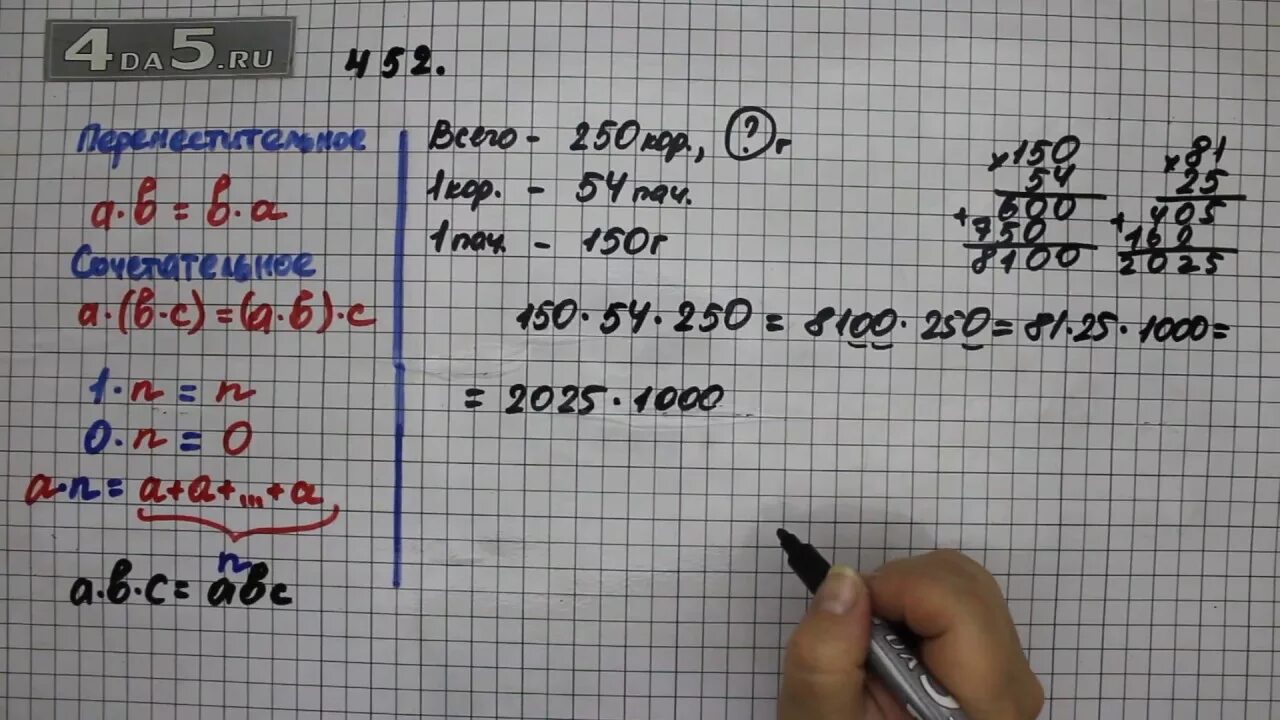 4DA5.RU
452.
Переместительное
a·в = в·a
Сочетательное
a·(в·c)=(a·в)·c
1·n = n
0·n = 0
a·n = a+a+...+a
n
a·в·c = aвc
Всего - 250 кор., ? г
1 кор. - 54 пач.
1 пач. - 150 г
×150
54
+600
750
8100
×81
25
+405
162
2025
150·54·250 = 8100·250 = 81·25·1000 =
= 2025·1000
DA